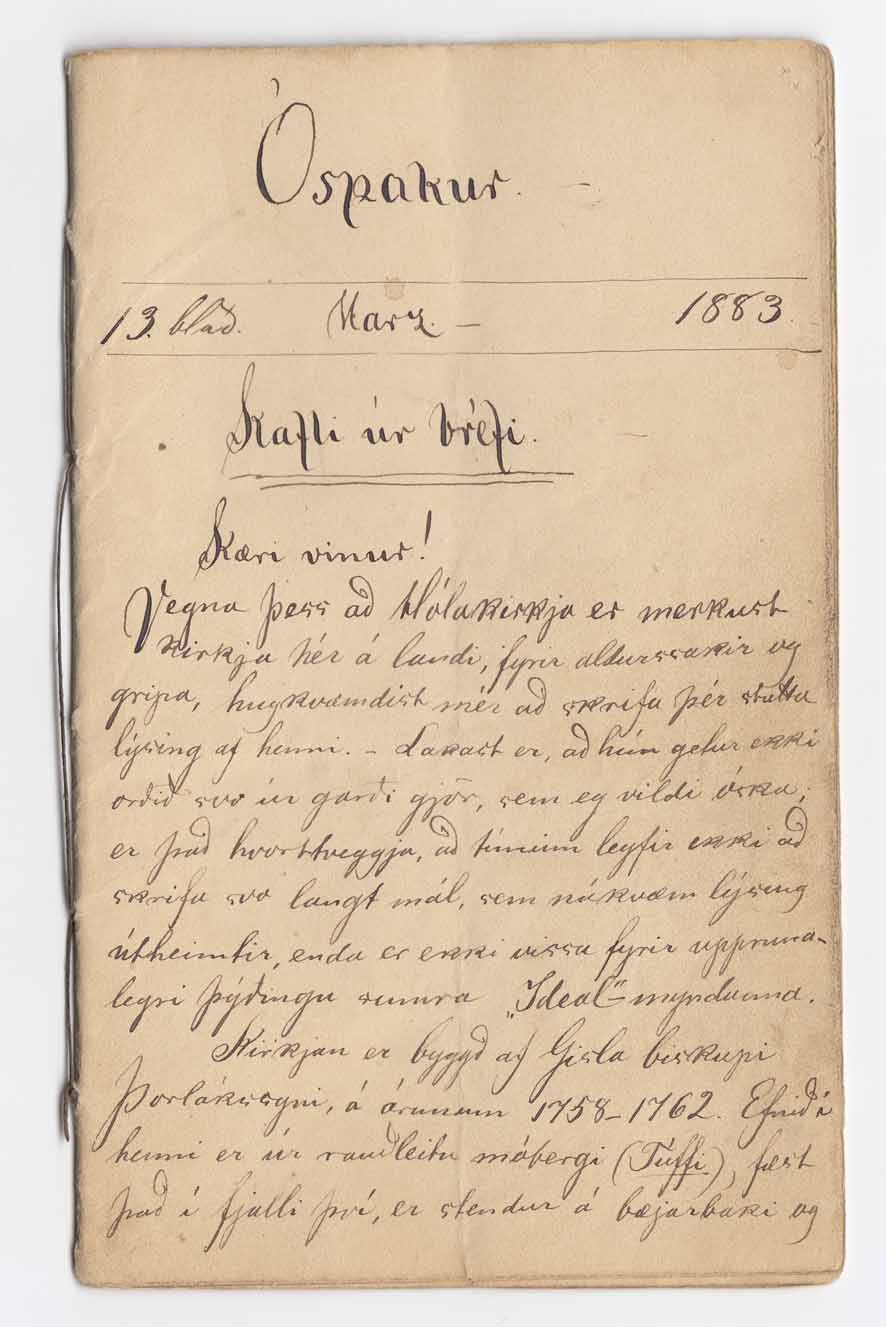 Óspakur.
13. blad. Marz. – 1883.
Kafli úr bréfi.
Kæri vinur!
Vegna þess að Hólakirkja er merkust
kirkja hér á landi, fyrir aldurssakir og
gripa, hugkvæmdist mér að skrifa þér stutta
lýsing af henni. – Lakast er, að hún getur ekki
orðið svo úr garði gjör, sem eg vildi óska,
er það hvorttveggja, að tíminn leyfir ekki að
skrifa svo langt mál, sem nákvæm lýsing
útheimtir, enda er ekki vissa fyrir uppruna-
legri þýðingu sumra „Ideal“-myndanna.
Kirkjan er byggð af Gisla biskupi
Þorlákssyni, á árunum 1758–1762. Efnið í
henni er úr rauðleitu móbergi (Túffi), fæst
það í fjalli því, er stendur á bæjarbaki og